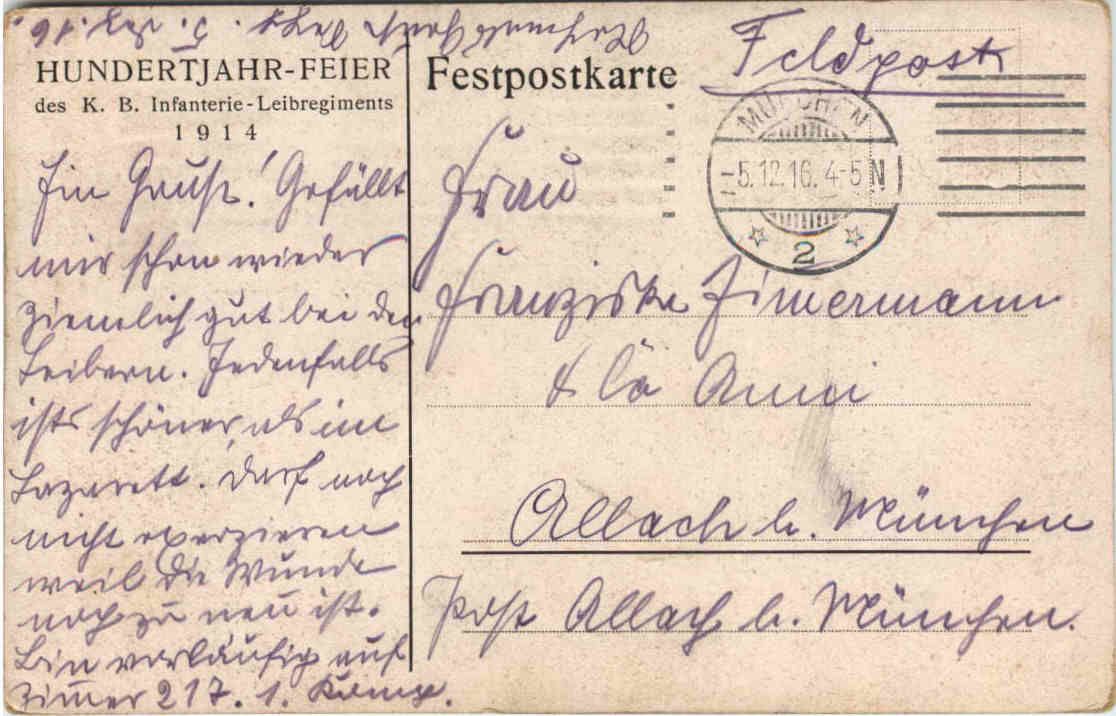 5. Dez. 16.
HUNDERTJAHR-FEIER
des K. B. Infanterie-Leibregiments
1914
Ein Gruß! Gefällt
mir schon wieder
ziemlich gut bei den
Leibern. Jedenfalls
ists schöner, als im
Lazarett. Darf noch
nicht exerzieren
weil die Wunde
noch zu neu ist.
Bin vorläufig auf
Zimer 217. 1. Komp.
Festpostkarte
Feldpost
MÜNCHEN
-5.12.16. 4-5 N
2
Frau
Franziska Zimermann
Anni
Allach b. München
Post Allach b. München.